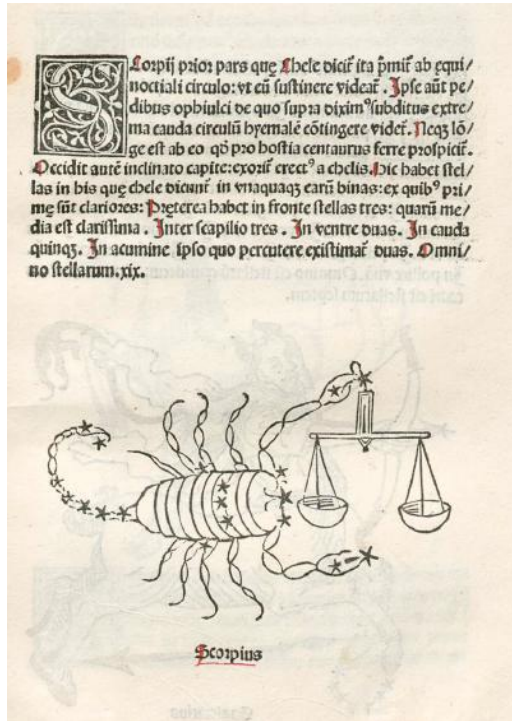 Scorpij prior pars que Chele dicit̃ ita p̃mit̃ ab equi/
noctiali circulo: vt eũ sustinere videat̃. Ipse aũt pe/
dibus ophiulci de quo supra diximꝰ subditus extre/
ma cauda circulũ hyemalẽ cõtingere videt̃. Neqꝫ lõ/
ge est ab eo qđ pro hostia centaurus ferre prospicit̃.
Occidit autẽ inclinato capite: exorit̃ erectꝰ a chelis. Hic habet stel/
las in his que chele dicunt̃ in vnaquaqꝫ earũ binas: ex quibꝰ pri/
me sũt clariores: Preterea habet in fronte stellas tres: quarũ me/
dia est clarissima. Inter scapilio tres. In ventre duas. In cauda
quinqꝫ. In acumine ipso quo percutere existimat̃ duas. Omni/
no stellarum .xix.
Scorpius